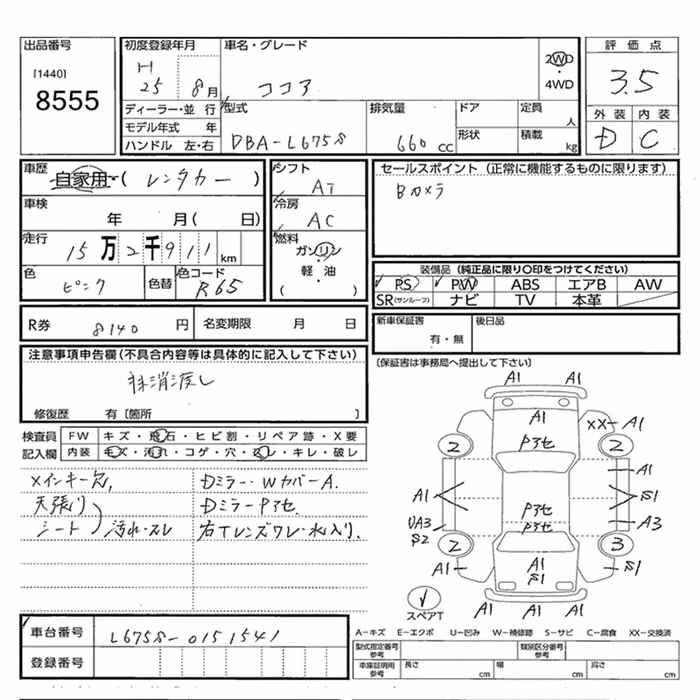 出品番号
[1440]
8555
初度登録年月
H
25 8月
車名・グレード
ココア
2WD
・
4WD
評価点
3.5
外装 内装
D C
ディーラー・並行
モデル年式 年
ハンドル 左・右
型式
DBA-L675S
排気量
660cc
ドア
形状
定員
人
積載
kg
車歴
自家用・(レンタカー)
車検
年 月( 日)
走行
15万2千911km
色
ピンク
色替
色コード
R65
シフト
AT
冷房
AC
燃料
ガソリン
・
軽・油
( )
セールスポイント (正常に機能するものに限ります)
Bカメラ
装備品 (純正品に限り○印をつけてください)
PS PW ABS エアB AW
SR(サンルーフ) ナビ TV 本革
R券 8140円
名変期限 月 日
新車保証書
有・無
後日品
[保証書は事務局へ提出して下さい]
注意事項申告欄(不具合内容等は具体的に記入して下さい)
抹消渡し
修復歴 有 [箇所 ]
検査員
記入欄
FW キズ・飛石・ヒビ割・リペア跡・X要
内装 キズ・汚れ・コゲ・穴・スレ・キレ・破レ
メインキー欠,
天張り
シート 汚れ・スレ
Dミラー・WカバーA.
DミラーPアセ.
右Tレンズワレ・水入り.
A1
A1 A1
A1
Pアセ
XX A1
2 2
A1
A1
S1
Pアセ
Pアセ
UA3
S2
A3
2 3
A1
A1
S1
S1
スペアT
A1 A1 A1
車台番号
L675S-0151541
登録番号
A-キズ E-エクボ U-凹み W-補修跡 S-サビ C-腐食 XX-交換済
型式指定番号
参考
類別区分番号
参考
車庫証明用
参考
長さ cm
幅 cm
高さ cm